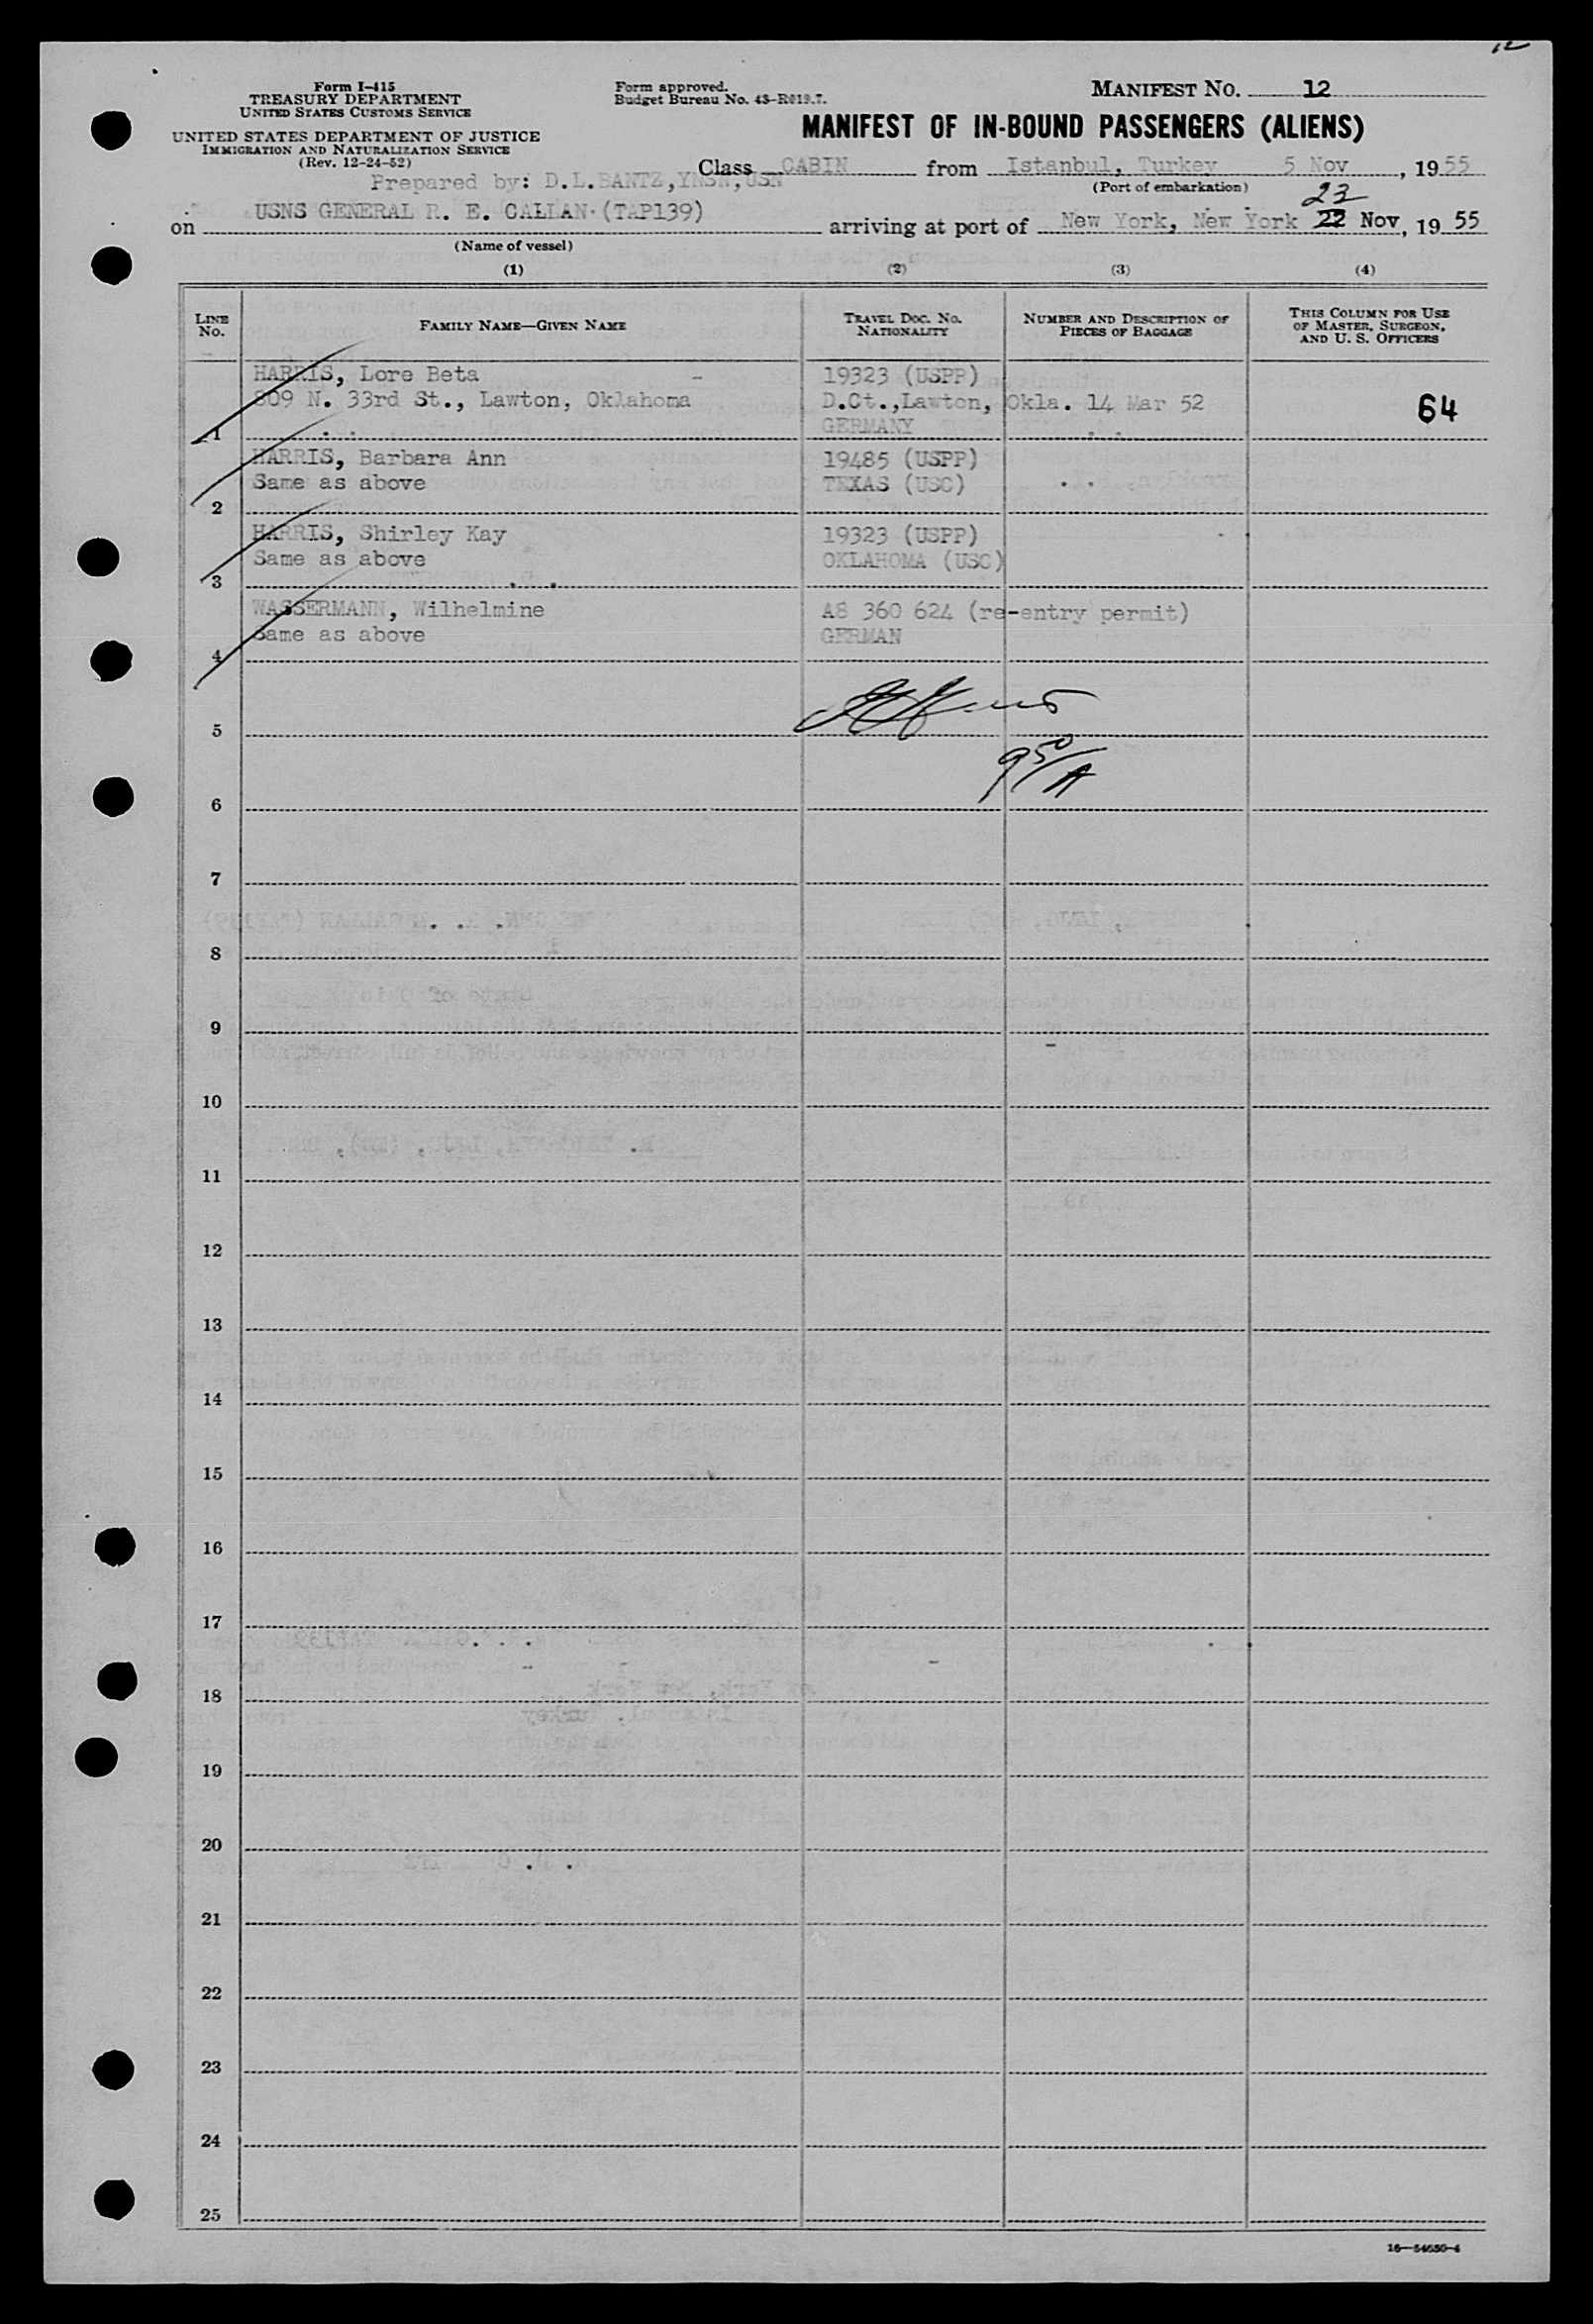 12
Form I-415
TREASURY DEPARTMENT
UNITED STATES CUSTOMS SERVICE
UNITED STATES DEPARTMENT OF JUSTICE
IMMIGRATION AND NATURALIZATION SERVICE
(Rev. 12-24-52)
Form approved.
Budget Bureau No. 43-R019.7.
MANIFEST NO. 12
MANIFEST OF IN-BOUND PASSENGERS (ALIENS)
Class CABIN from Istanbul, Turkey 5 Nov, 1955
(Port of embarkation)
Prepared by: D.L.BANTZ,YNSN,USN
23
on USNS GENERAL R. E. CALLAN (TAP139) arriving at port of New York, New York 22 Nov, 19 55
(Name of vessel)
(1) (2) (3) (4)
LINE NO. FAMILY NAME—GIVEN NAME TRAVEL DOC. NO. NATIONALITY NUMBER AND DESCRIPTION OF PIECES OF BAGGAGE THIS COLUMN FOR USE OF MASTER, SURGEON, AND U. S. OFFICERS
HARRIS, Lore Beta 19323 (USPP)
809 N. 33rd St., Lawton, Oklahoma D.Ct.,Lawton, Okla. 14 Mar 52 64
1 GERMANY
HARRIS, Barbara Ann 19485 (USPP)
Same as above TEXAS (USC)
2
HARRIS, Shirley Kay 19323 (USPP)
Same as above OKLAHOMA (USC)
3
WASSERMANN, Wilhelmine A8 360 624 (re-entry permit)
Same as above GERMAN
4
5
950/A
6
7
8
9
10
11
12
13
14
15
16
17
18
19
20
21
22
23
24
25
16—54630-4